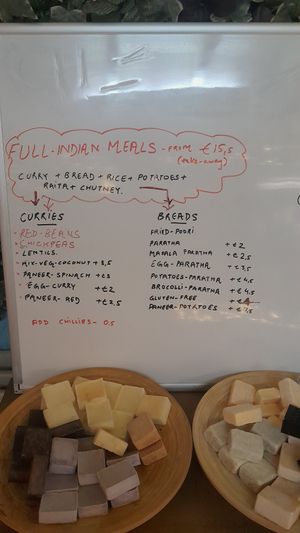 FULL-INDIAN MEALS - FROM €15,5
(take-away)
CURRY + BREAD + RICE + POTATOES +
RAITA + CHUTNEY.
CURRIES
• RED-BEANS
• CHICKPEAS
• LENTILS
• MIX-VEG-COCONUT + 3,5
• PANEER-SPINACH +€3
• EGG-CURRY +€2
• PANEER-RED +€2.5
ADD CHILLIES- 0.5
BREADS
FRIED-POORI
PARATHA +€2
MASALA PARATHA +€2,5
EGG-PARATHA +€3,5
POTATOES-PARATHA +€4,5
BROCOLLI-PARATHA +€4.5
GLUTEN-FREE +€4
PANEER-POTATOES +€7,5